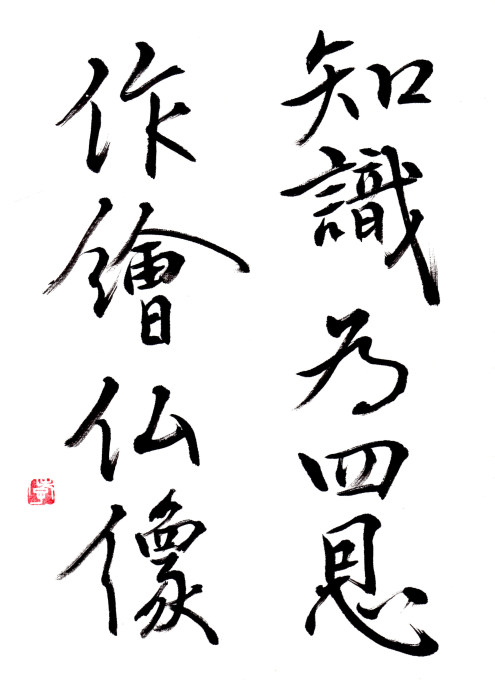 知識為四恩
作繪仏像